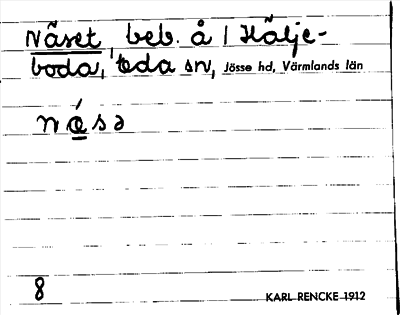 Näset beb. å 1 Hälje-
boda, Eda sn, Jösse hd, Värmlands län
næ̀sə
8
KARL RENCKE 1912